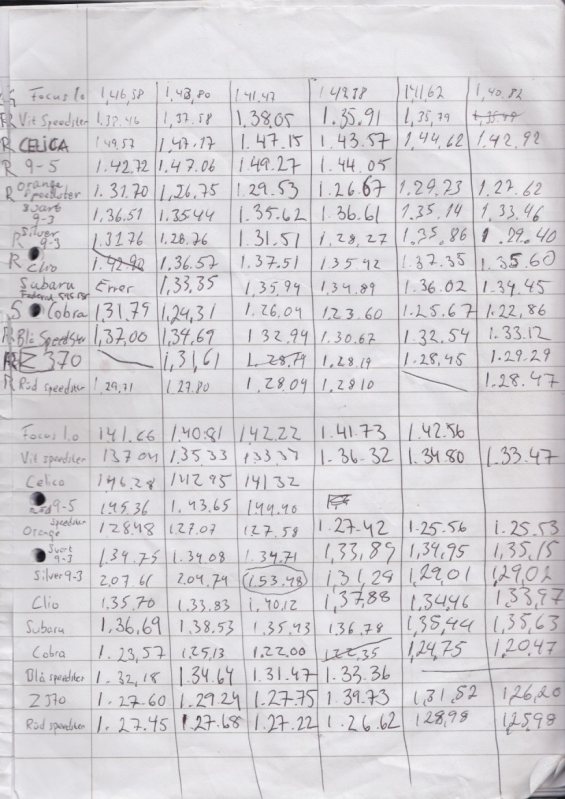 Focus 1.0 1,46,58 1,43,80 1,41,47 1.42.78 1.41,62 1,40.82
R Vit Speedster 1,38.46 1,37.58 1.38.05 1.35.91 1.35,79
R CELICA 1,49,57 1,47.17 1.47.15 1.43.57 1,44,62 1.42.92
R 9-5 1.42.72 1.47.06 1.49.27 1.44.05
R Orange speedster 1.31.70 1,26,75 1.29.53 1.26.67 1.29.73 1.27.62
Svart 9-3 1,36.51 1.35.44 1.35.62 1.36.61 1.35,14 1.33,46
R Silver 9-3 1.31.76 1.28.76 1.31.51 1,28,27 1.35,86 1.29.40
R Clio 1.42.90 1,36.57 1.37.51 1.35.42 1.37.35 1.35.60
Subaru Error 1,33,35 1,35,94 1.34.89 1.36.02 1.34.45
Federal 595
S Cobra 1,31,79 1,24,31 1,26,04 1.23.60 1.25.67 1.22,86
R Blå Speedster 1,37,00 1,34,69 1.32.94 1.30.67 1.32.54 1.33.12
R Z 370 1,31,61 1.28.79 1.28,19 1.28,45 1.29.29
R Röd speedster 1,29,71 1.27.80 1,28,09 1,28.10 1.28.47
Focus 1.0 1.41.66 1.40.81 1.42.22 1.41.73 1.42.56
Vit speedster 1.37.04 1.35.33 1.33.37 1.36.32 1.34.80 1.33.47
Celica 1.46.28 1.42.95 1.41.32
9-5 1.45.36 1,43.65 1.44.40
Orange speedster 1.28.48 1.27.07 1.27.58 1.27.42 1.25.56 1.25.53
Svart 9-3 1,34.75 1.34.08 1.34.71 1,33,89 1,34,95 1,35,15
Silver 9-3 2.07.61 2.04.79 1,53,48 1,31,29 1,29,01 1,29,02
Clio 1.35.70 1.33.83 1,40.12 1,37,88 1,34,46 1,33,97
Subaru 1,36,69 1.38.53 1.35.43 1.36.78 1,35,44 1,35,63
Cobra 1.23,57 1,25,13 1.22.00 1.22.35 1,24,75 1,20,47
Blå speedster 1.32,18 1.34.64 1.31.47 1.33.36
Z370 1.27.60 1.29.24 1.27.75 1.39.73 1,31,52 1,26,20
Röd speedster 1.27.45 1.27.68 1.27.22 1.26.62 1,28,98 1,25,98